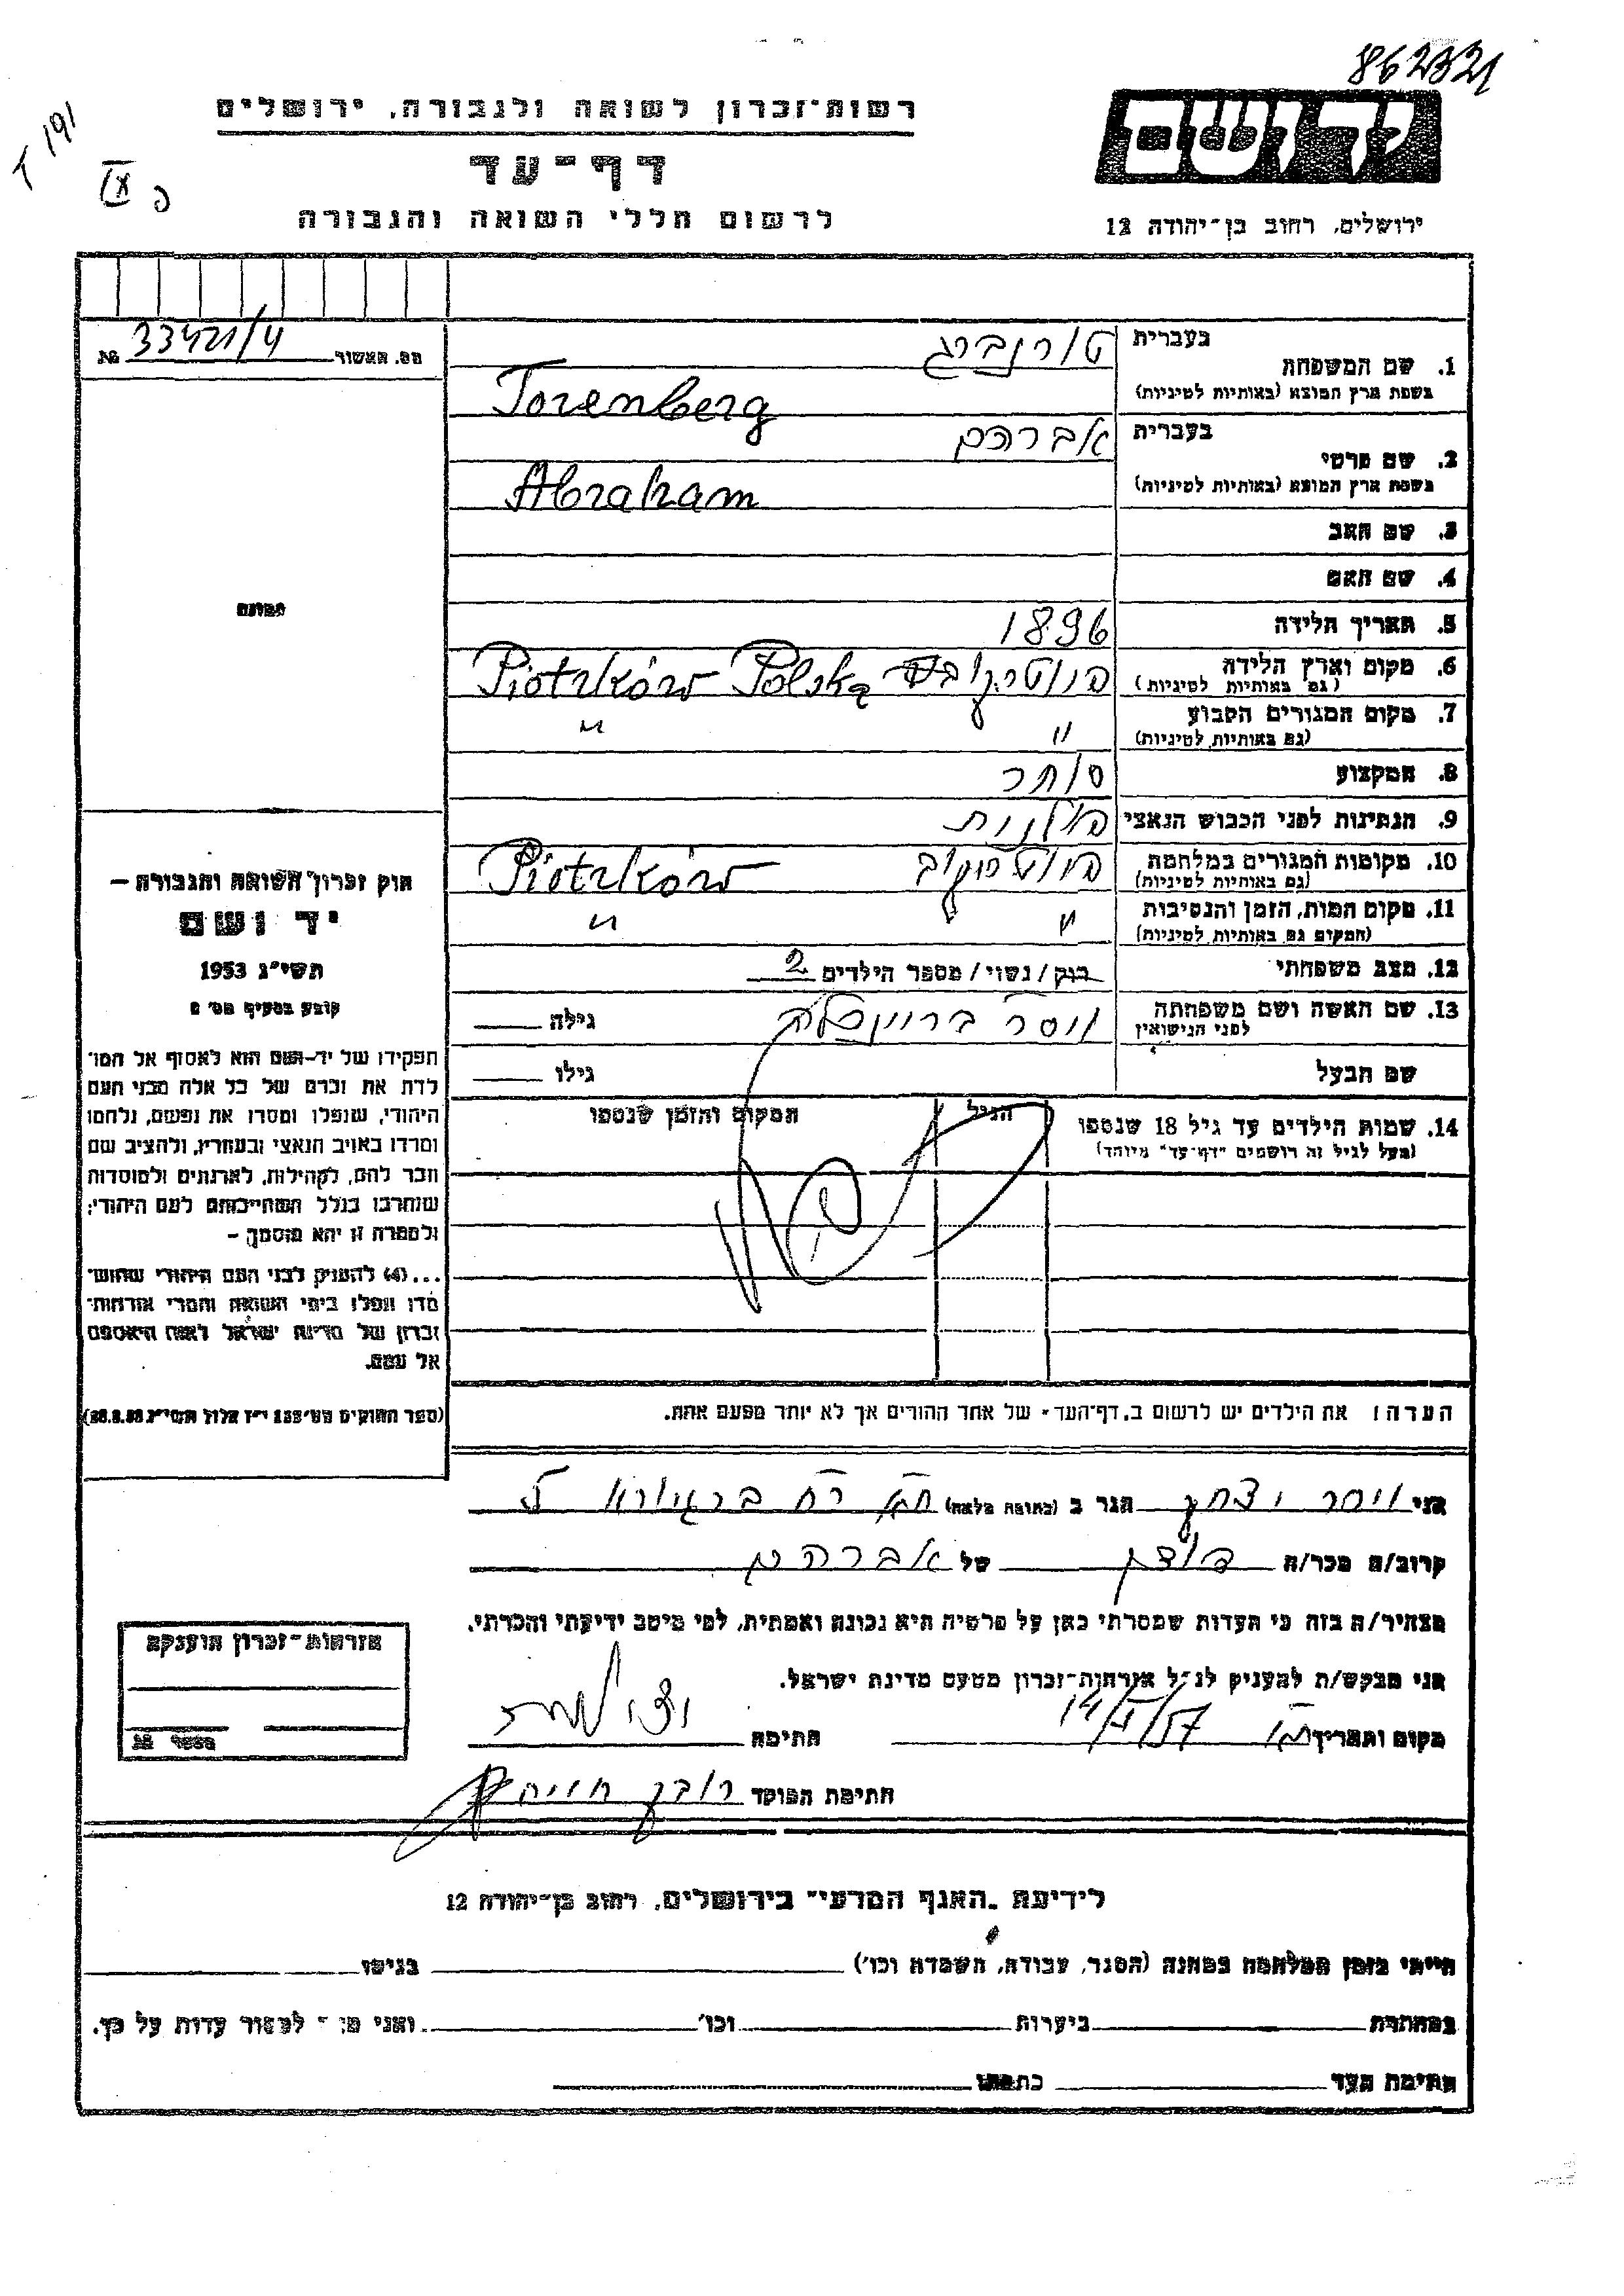 862321
T 191
IX
רשות־זכרון לשואה ולגבורה, ירושלים
דף־עד
לרשום חללי השואה והגבורה
יד ושם
ירושלים, רחוב בן־יהודה 12
מס. האשור 33421/4 №
בעברית טורנברג
1. שם המשפחה
בשפת ארץ המוצא (באותיות לטיניות) Torenberg
בעברית אברהם
2. שם פרטי
בשפת ארץ המוצא (באותיות לטיניות) Abraham
3. שם האב
4. שם האם
5. תאריך הלידה 1896
6. מקום וארץ הלידה פיוטרקוב Piotrków Polska
(גם באותיות לטיניות)
7. מקום המגורים הקבוע " "
(גם באותיות לטיניות)
8. המקצוע סוחר
9. הנתינות לפני הכבוש הנאצי פולנית
10. מקומות המגורים במלחמה פיוטרקוב Piotrków
(גם באותיות לטיניות)
11. מקום המות, הזמן והנסיבות " "
(המקום גם באותיות לטיניות)
12. מצב משפחתי רווק / נשוי / מספר הילדים 2
13. שם האשה ושם משפחתה
לפני הנישואין גילה
שם הבעל גילו
14. שמות הילדים עד גיל 18 שנספו הגיל המקום והזמן שנספו
(מעל לגיל זה רושמים "דף־עד" מיוחד)
הערה: את הילדים יש לרשום ב"דף־העד" של אחד ההורים אך לא יותר מפעם אחת.
תמונה
חוק זכרון השואה והגבורה –
יד ושם
תשי"ג 1953
קובע בסעיף מס' 2
תפקידו של יד-ושם הוא לאסוף אל המו־
לדת את זכרם של כל אלה מבני העם
היהודי, שנפלו ומסרו את נפשם, נלחמו
ומרדו באויב הנאצי ובעוזריו, ולהציב שם
וזכר להם, לקהילות, לארגונים ולמוסדות
שנחרבו בגלל השתייכותם לעם היהודי;
ולמטרה זו יהא מוסמך –
...(4) להעניק לבני העם היהודי שהוש־
מדו ונפלו בימי השואה והמרי אזרחות־
זכרון של מדינת ישראל לאות היאספם
אל עמם.
(ספר החוקים מס' 132 י"ז אלול תשי"ג 28.8.53)
אני יצחק הגר ב (כתובת מלאה)
קרוב/ה מכר/ה של אברהם
מצהיר/ה בזה כי העדות שמסרתי כאן על פרטיה היא נכונה ואמתית, לפי מיטב ידיעתי והכרתי.
אני מבקש/ת להעניק לנ"ל אזרחות־זכרון מטעם מדינת ישראל.
מקום ותאריך 14/V/57 חתימה
חתימת הפוקד ראובן
אזרחות־זכרון הוענקה
מספר №
לידיעת "האגף המדעי" בירושלים, רחוב בן־יהודה 12
הייתי בזמן המלחמה במחנה (הסגר, עבודה, השמדה וכו') בגיטו
במחתרת ביערות וכו' ואני מו־ למסור עדות על כך.
חתימת העד כתבתו